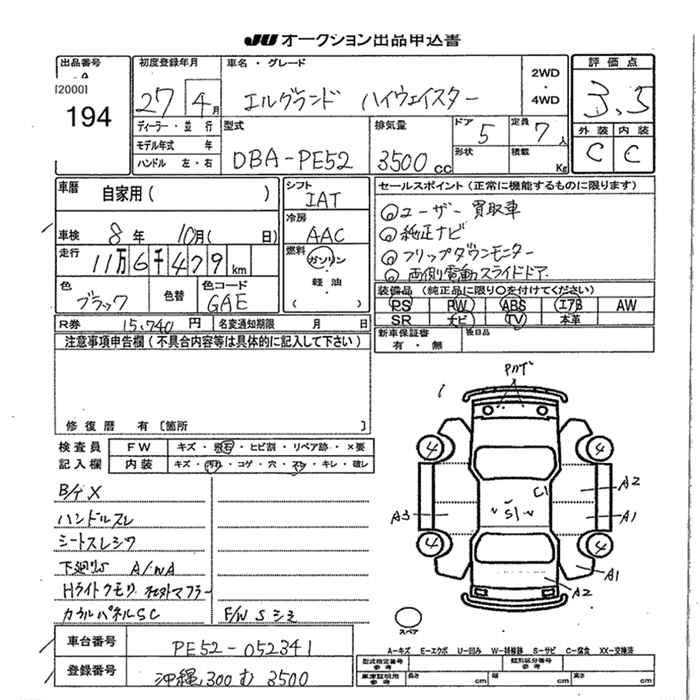 JU オークション出品申込書
出品番号 初度登録年月 車名・グレード 2WD・4WD 評価点
[2000] 27 4月 エルグランド ハイウェイスター 3.5
194
ディーラー・並行 型式 排気量 ドア 5 定員 7人 外装 内装
モデル年式 年
ハンドル 左・右 DBA-PE52 3500cc 形状 積載 Kg C C
車歴 自家用( ) シフト IAT セールスポイント(正常に機能するものに限ります)
車検 8年 10月( 日) 冷房 AAC ユーザー買取車
純正ナビ
走行 11万6千479km 燃料 ガソリン・軽油・( ) フリップダウンモニター
両側電動スライドドア
色 ブラック 色替 色コード GAE 装備品(純正品に限り○を付けてください)
PS PW ABS エアB AW
R券 15,740円 名変通知期限 月 日 SR ナビ TV 本革
注意事項申告欄(不具合内容等は具体的に記入して下さい) 新車保証書 有・無 後日品
修復歴 有〔箇所 〕
検査員記入欄 FW キズ・飛石・ヒビ割・リペア跡・×要
内装 キズ・汚れ・コゲ・穴・スレ・キレ・破レ
B/ゲX
ハンドルスレ
シートスレシワ
下廻りS A/WA
Hライトクモリ 社外マフラー
カウルパネルSC F/W Sシミ
4 4
C1 A2
A3 S1 A1
4 4
A1
A2
スペア
車台番号 PE52-052341
A-キズ E-エクボ U-凹み W-補修跡 S-サビ C-腐食 XX-交換済
登録番号 沖縄300む3500
型式指定番号 参考 類別区分番号 参考
車庫証明用 参考 長さ cm 幅 cm 高さ cm